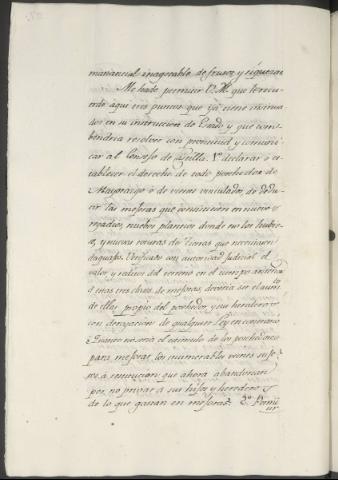 manantial inagotable de frutos, y riquezas
Me ha de permitir V. M. que le recu-
erde aquí tres puntos que ya tiene insinua-
dos en su instruccion de Estado y que com-
bendria resolver con prontitud y comuni-
car al Consejo de Castilla. 1º declarar o es-
tablecer el derecho de todo posehedor de
Mayorazgo o de vienes vinculados, de dedu-
cir las mejoras que consistieren en nuevos
regadios, nuevos plantios donde no los hubie-
se, y nuevas roturas de tierras que necesiten
desaguarse. Verificado con autoridad judicial el
valor, y estado del terreno en el tiempo anterior
a estas tres clases de mejoras, deveria ser el aumto
de ellas propio del posehedor, y sus herederos
con derogacion de qualquier Ley en contrario
Quanto no sería el estimulo de los posehedores
para mejorar los inumerables vienes suje-
tos á restitucion, que ahora abandonan
por no privar a sus hijos y herederos
de lo que gastan en mejoras? 2º Permi-
tir